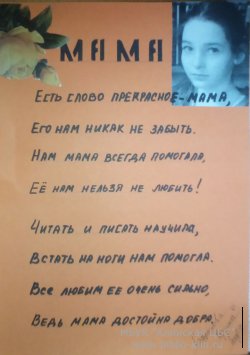 МАМА
ЕСТЬ СЛОВО ПРЕКРАСНОЕ-МАМА
ЕГО НАМ НИКАК НЕ ЗАБЫТЬ.
НАМ МАМА ВСЕГДА ПОМОГАЛА,
ЕЁ НАМ НЕЛЬЗЯ НЕ ЛЮБИТЬ!
ЧИТАТЬ И ПИСАТЬ НАУЧИЛА,
ВСТАТЬ НА НОГИ НАМ ПОМОГЛА.
ВСЕ ЛЮБИМ ЕЁ ОЧЕНЬ СИЛЬНО,
ВЕДЬ МАМА ДОСТОЙНА ДОБРА.